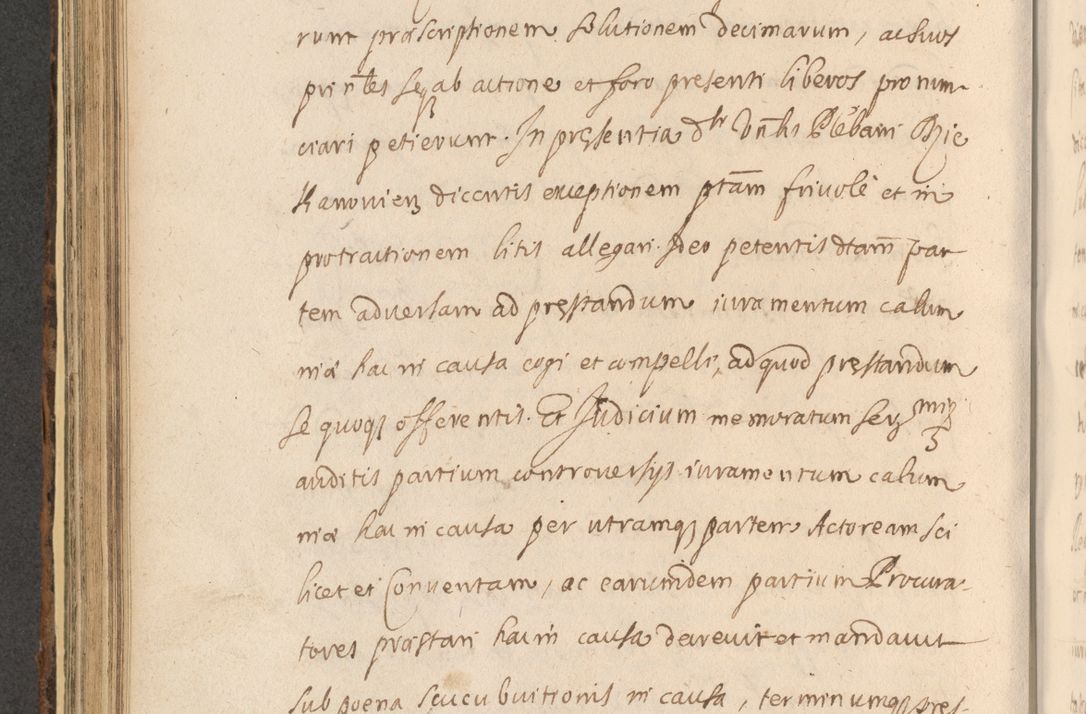 runt præscriptionem solutionem decimarum, ac suos
prīntes seq ab actione et foro presenti liberos pronun-
ciari petierunt. In presentia d̄ti Vn̄lis Plebani Bie
Kanoviens dicentis exceptionem ptam̄ frivolé et in
protractionem litis allegari. Ideo petentis dtam̄ par
tem adversam ad prestandum iuramentum calum
niæ hac in causa cogi et compelli, ad quod prestandum
se quoq offerentis. Et Judicium memoratum
auditis partium controversijs iuramentum calum
niæ hac in causa per utramq partem Actoream sci
licet et Conventam, ac earumdem partium Procura-
tores præstari hac in causa decrevit et mandavit
sub poena succubuitionis in causa, terminumq pres-